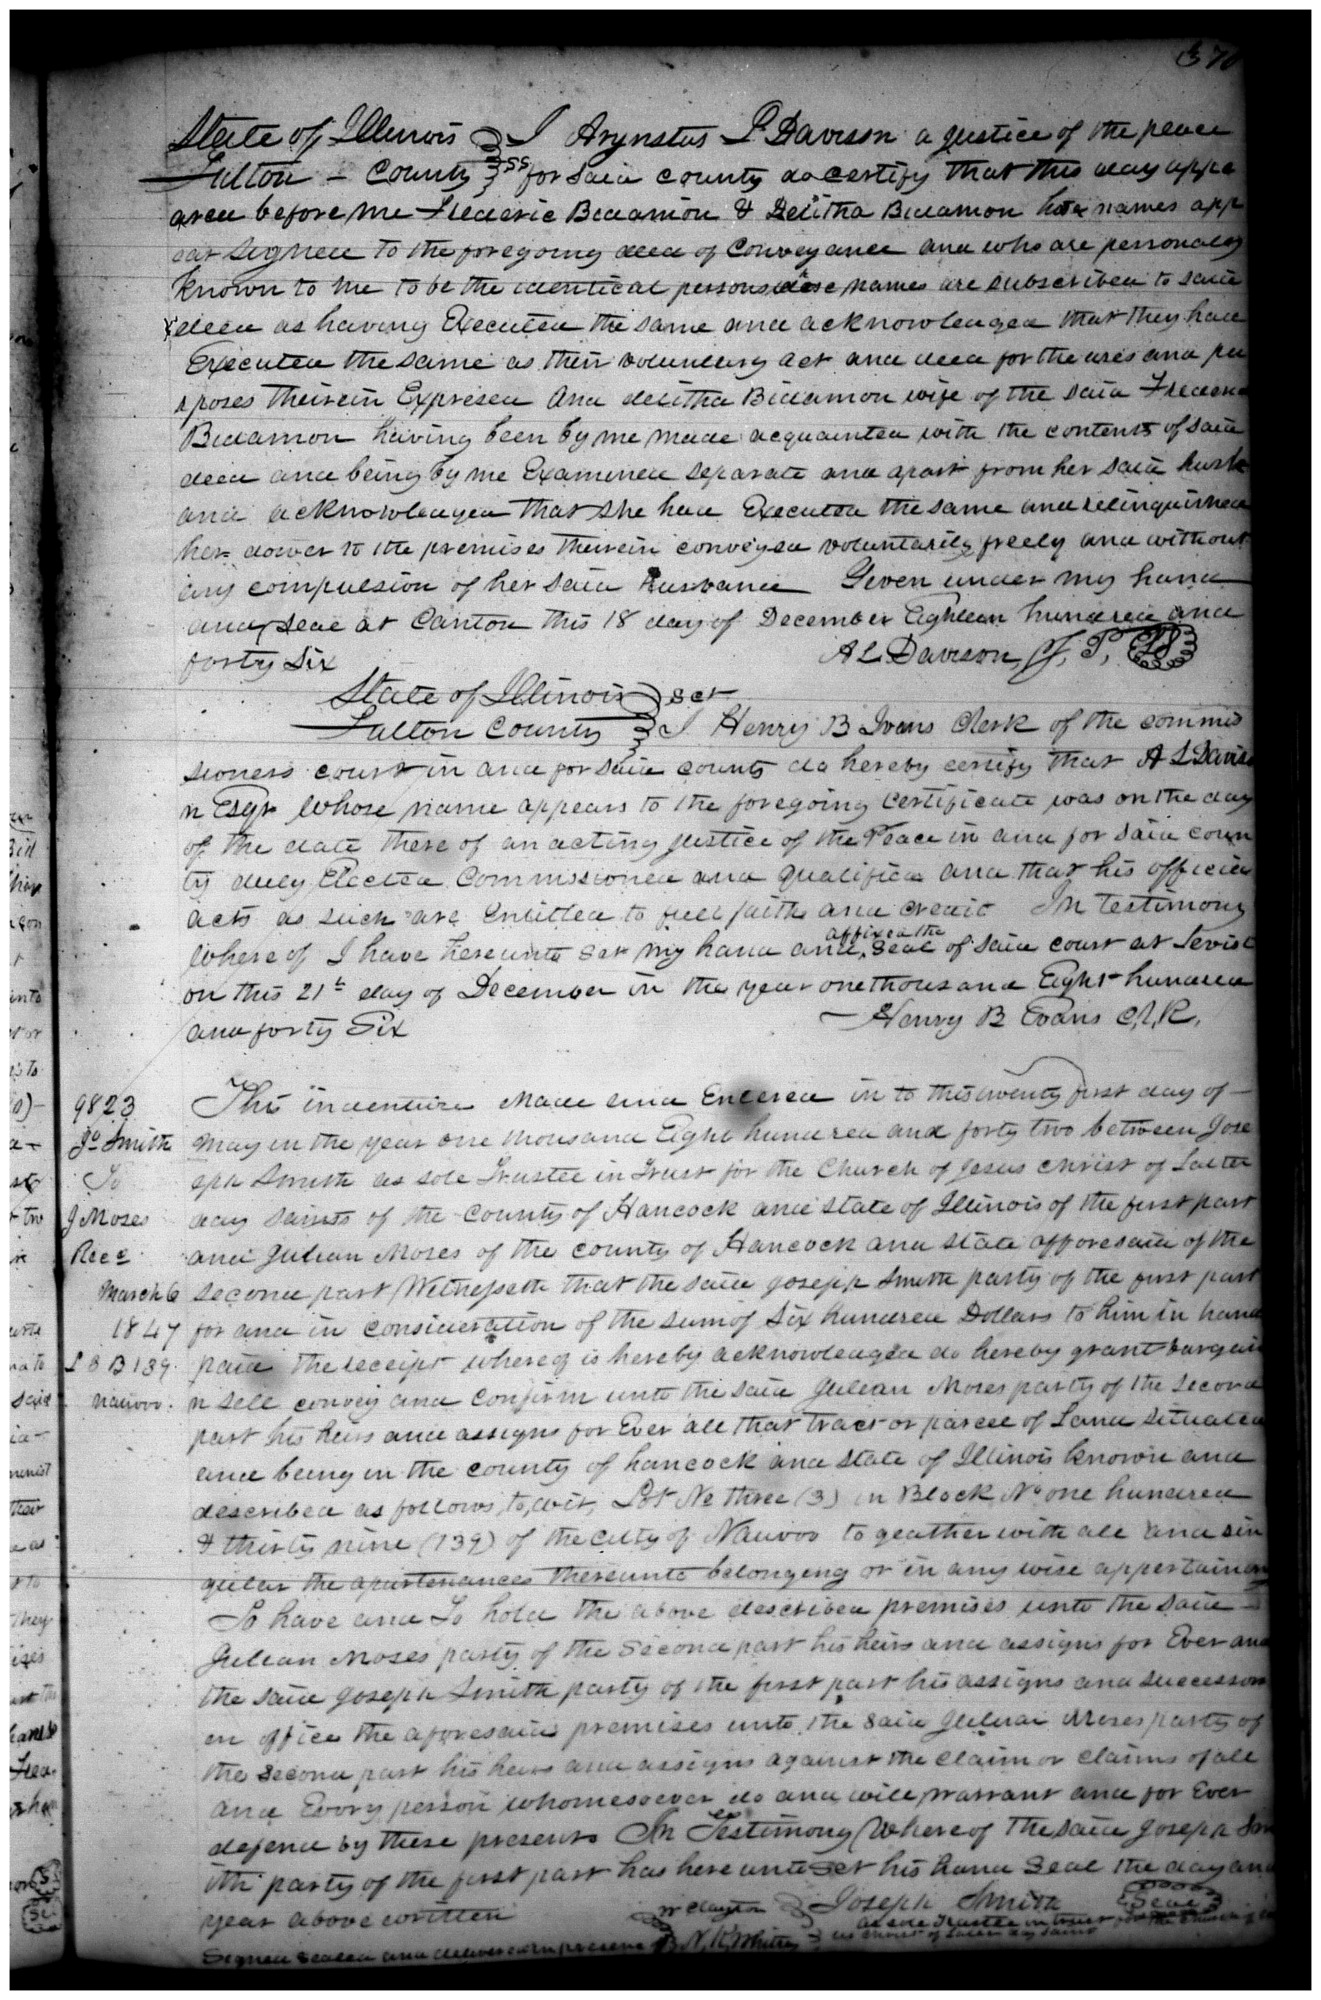 370
State of Illinois } I Arynstus L Davison a justice of the peace
Fulton - County } ss for said county do certify that this day appe
ared before me Frederic Bidamon & Delitha Bidamon names app
ear signed to the foregoing deed of Conveyance and who are personaly
known to me to be the identical persons whose names are subscribed to said
deed as having Executed the same and acknowledged that they had
Executed the same as their voluntary act and deed for the uses and pu
rposes therein Expresed And delitha Bidamon wife of the said Frederic
Bidamon having been by me made acquainted with the contents of said
deed and being by me Examined separate and apart from her said husb
and acknowledged that she had Executed the same and relinquished
her dower to the premises therein conveyed voluntarily freely and without
any compulsion of her said husband Given under my hand
and seal at Canton this 18 day of December Eighteen hundred and
forty Six A L Davison, J, P,
State of Illinois } Sct
Fulton County } I Henry B Evans Clerk of the commis
sioners court in and for said county do hereby certify that A L Daviso
n Esqr Whose name appears to the foregoing certificate was on the day
of the date there of an acting justice of the Peace in and for said coun
ty duly Elected Commissioned and qualified and that his official
acts as such are Entitled to full faith and credit In Testimony
Where of I have hereunto set my hand and affixed the seal of said court at Lewist
on this 21st day of December in the year one thousand Eight hundred
and forty Six Henry B Evans Clk,
9823
Jo Smith
To
J Moses
Recd
March 6
1847
L 3 B 139.
nauvoo.
This indenture Made and Entered in to this twenty first day of -
May in the year one thousand Eight hundred and forty two between Jose
eph Smith as sole Trustee in Trust for the Church of Jesus Christ of Latter
day Saints of the County of Hancock and State of Illinois of the first part
and Julian Moses of the county of Hancock and state afforesaid of the
second part Witnesseth that the said Joseph Smith party of the first part
for and in consideration of the sum of Six hundred Dollars to him in hand
paid the receipt whereof is hereby acknowledged do hereby grant bargai
n sell convey and confirm unto the said Julian Moses party of the second
part his heirs and assigns for Ever all that tract or parcel of Land situated
and being in the county of hancock and state of Illinois known and
described as follows, to, wit, Lot No three (3) in Block No one hundred
& thirty nine (139) of the city of Nauvoo to geather with all and sin
gular the apurtenances thereunto belonging or in any wise appertaining
To have and To hold the above described premises unto the said -
Julian Moses party of the Second part his heirs and assigns for Ever and
the said Joseph Smith party of the first part his assigns and successors
in office the aforesaid premises unto the said Julian Moses party of
the second part his heirs and assigns against the claim or claims of all
and Every person whomesoever do and will warrant and for Ever
defend by these presents In Testimony Where of The said Joseph Sm
ith party of the first part has here unto set his hand Seal the day and
year above written W Clayton } Joseph Smith Seal
as sole Trustee in trust for the Church of
Signed Sealed and delivered in presence N. K Whitney } Christ of Latter day Saints